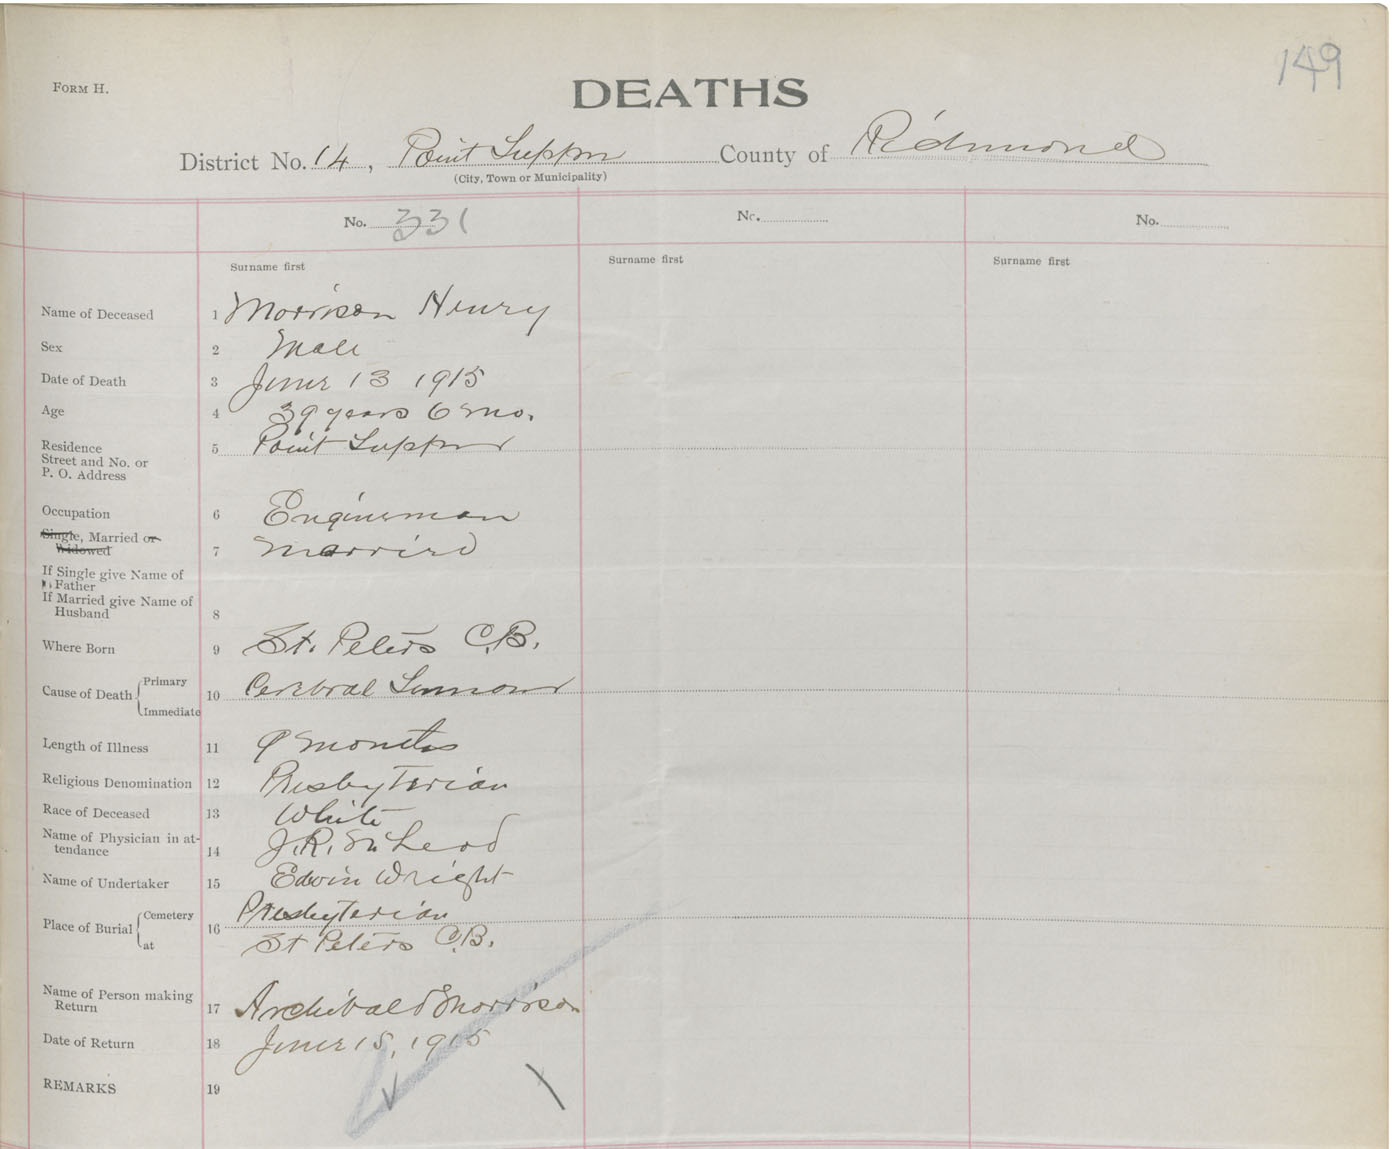 149
FORM H.
DEATHS
District No. 14, Point Tupper County of Richmond
(City, Town or Municipality)
No. 331 No. No.
Surname first Surname first Surname first
Name of Deceased 1 Morrison Henry
Sex 2 Male
Date of Death 3 June 13 1915
Age 4 39 years 6 mo.
Residence 5 Point Tupper
Street and No. or
P. O. Address
Occupation 6 Engineman
Single, Married or 7 Married
Widowed
If Single give Name of
Father
If Married give Name of
Husband 8
Where Born 9 St. Peters C.B.
Cause of Death Primary 10 Cerebral Tumour
Immediate
Length of Illness 11 9 months
Religious Denomination 12 Presbyterian
Race of Deceased 13 White
Name of Physician in at-
tendance 14 J.R. McLeod
Name of Undertaker 15 Edwin Wright
Place of Burial Cemetery 16 Presbyterian
at St Peters C.B.
Name of Person making
Return 17 Archibald Morrison
Date of Return 18 June 15, 1915
REMARKS 19